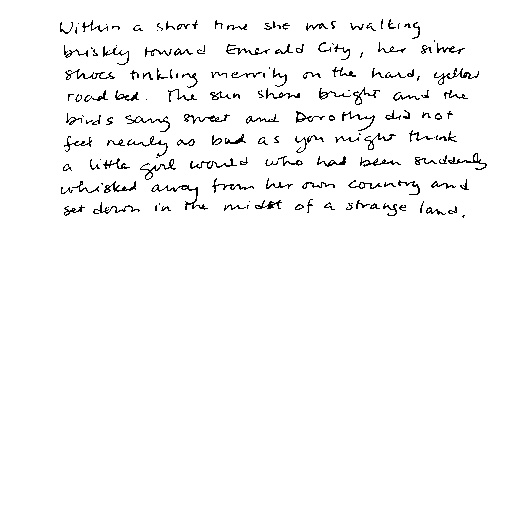 Within a short time she was walking
briskly toward Emerald City, her silver
shoes tinkling merrily on the hard, yellow
road bed. The sun shone bright and the
birds sang sweet and Dorothy did not
feel nearly as bad as you might think
a little girl would who had been suddenly
whisked away from her own country and
set down in the midst of a strange land.